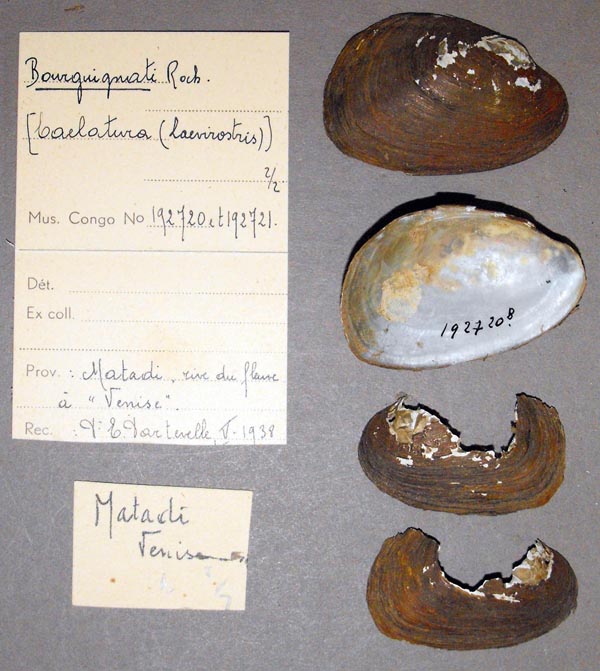 Bourguignati Roch.
[Caelatura (Laevirostris)]
2/2
Mus. Congo No 192720 et 192721.
Dét.
Ex coll.
Prov. : Matadi, rive du fleuve
à "Venise".
Rec. : E. Dartevelle, V. 1938
Matadi
Venise
192720